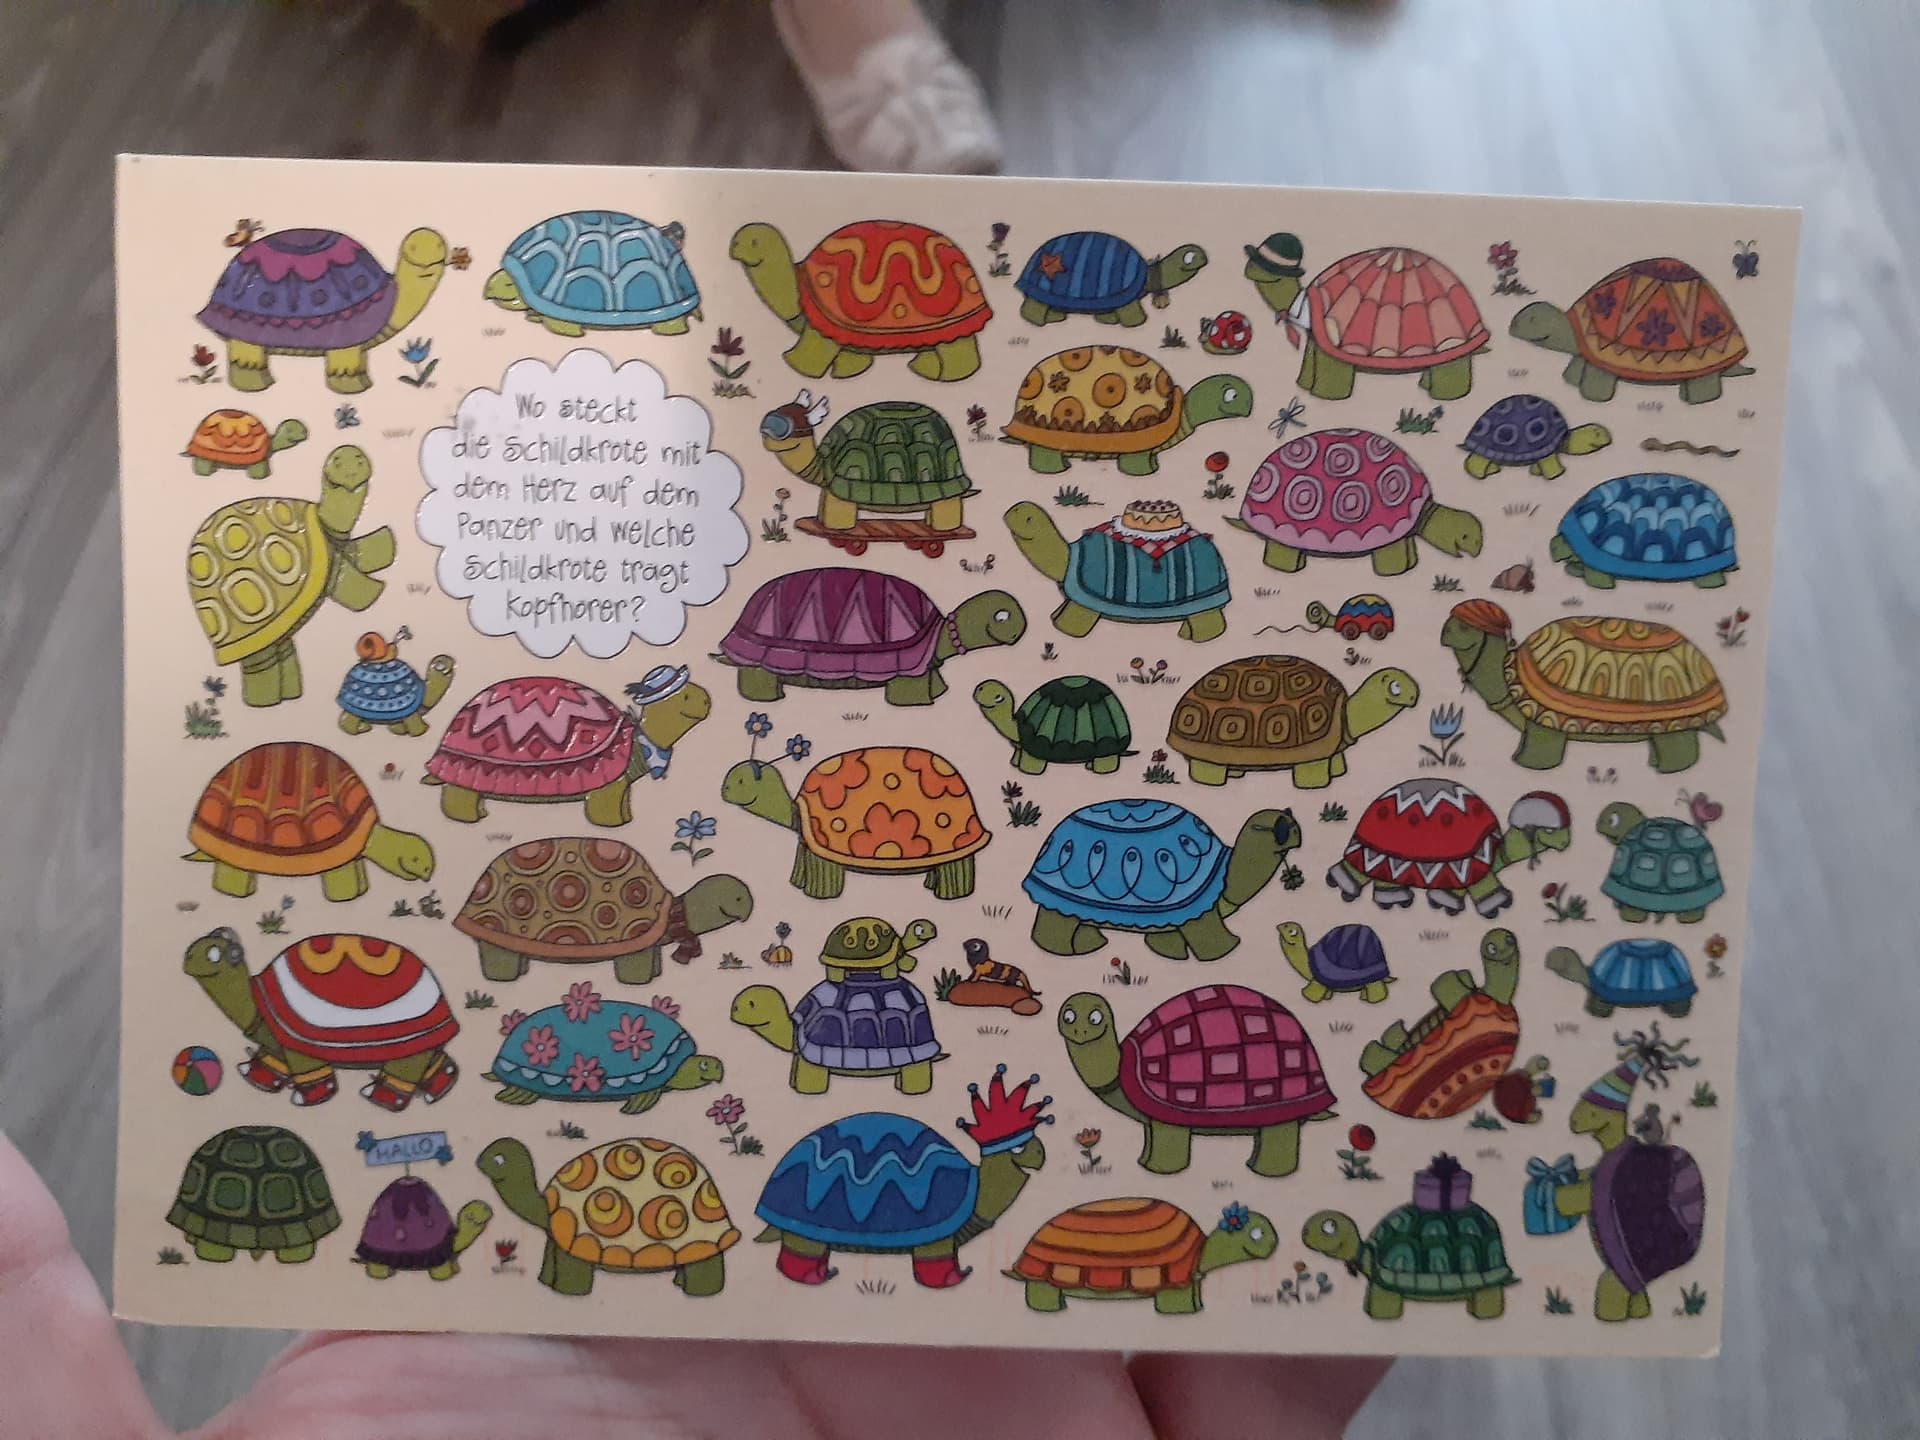 Wo steckt
die Schildkröte mit
dem Herz auf dem
Panzer und welche
Schildkröte trägt
Kopfhörer?
HALLO